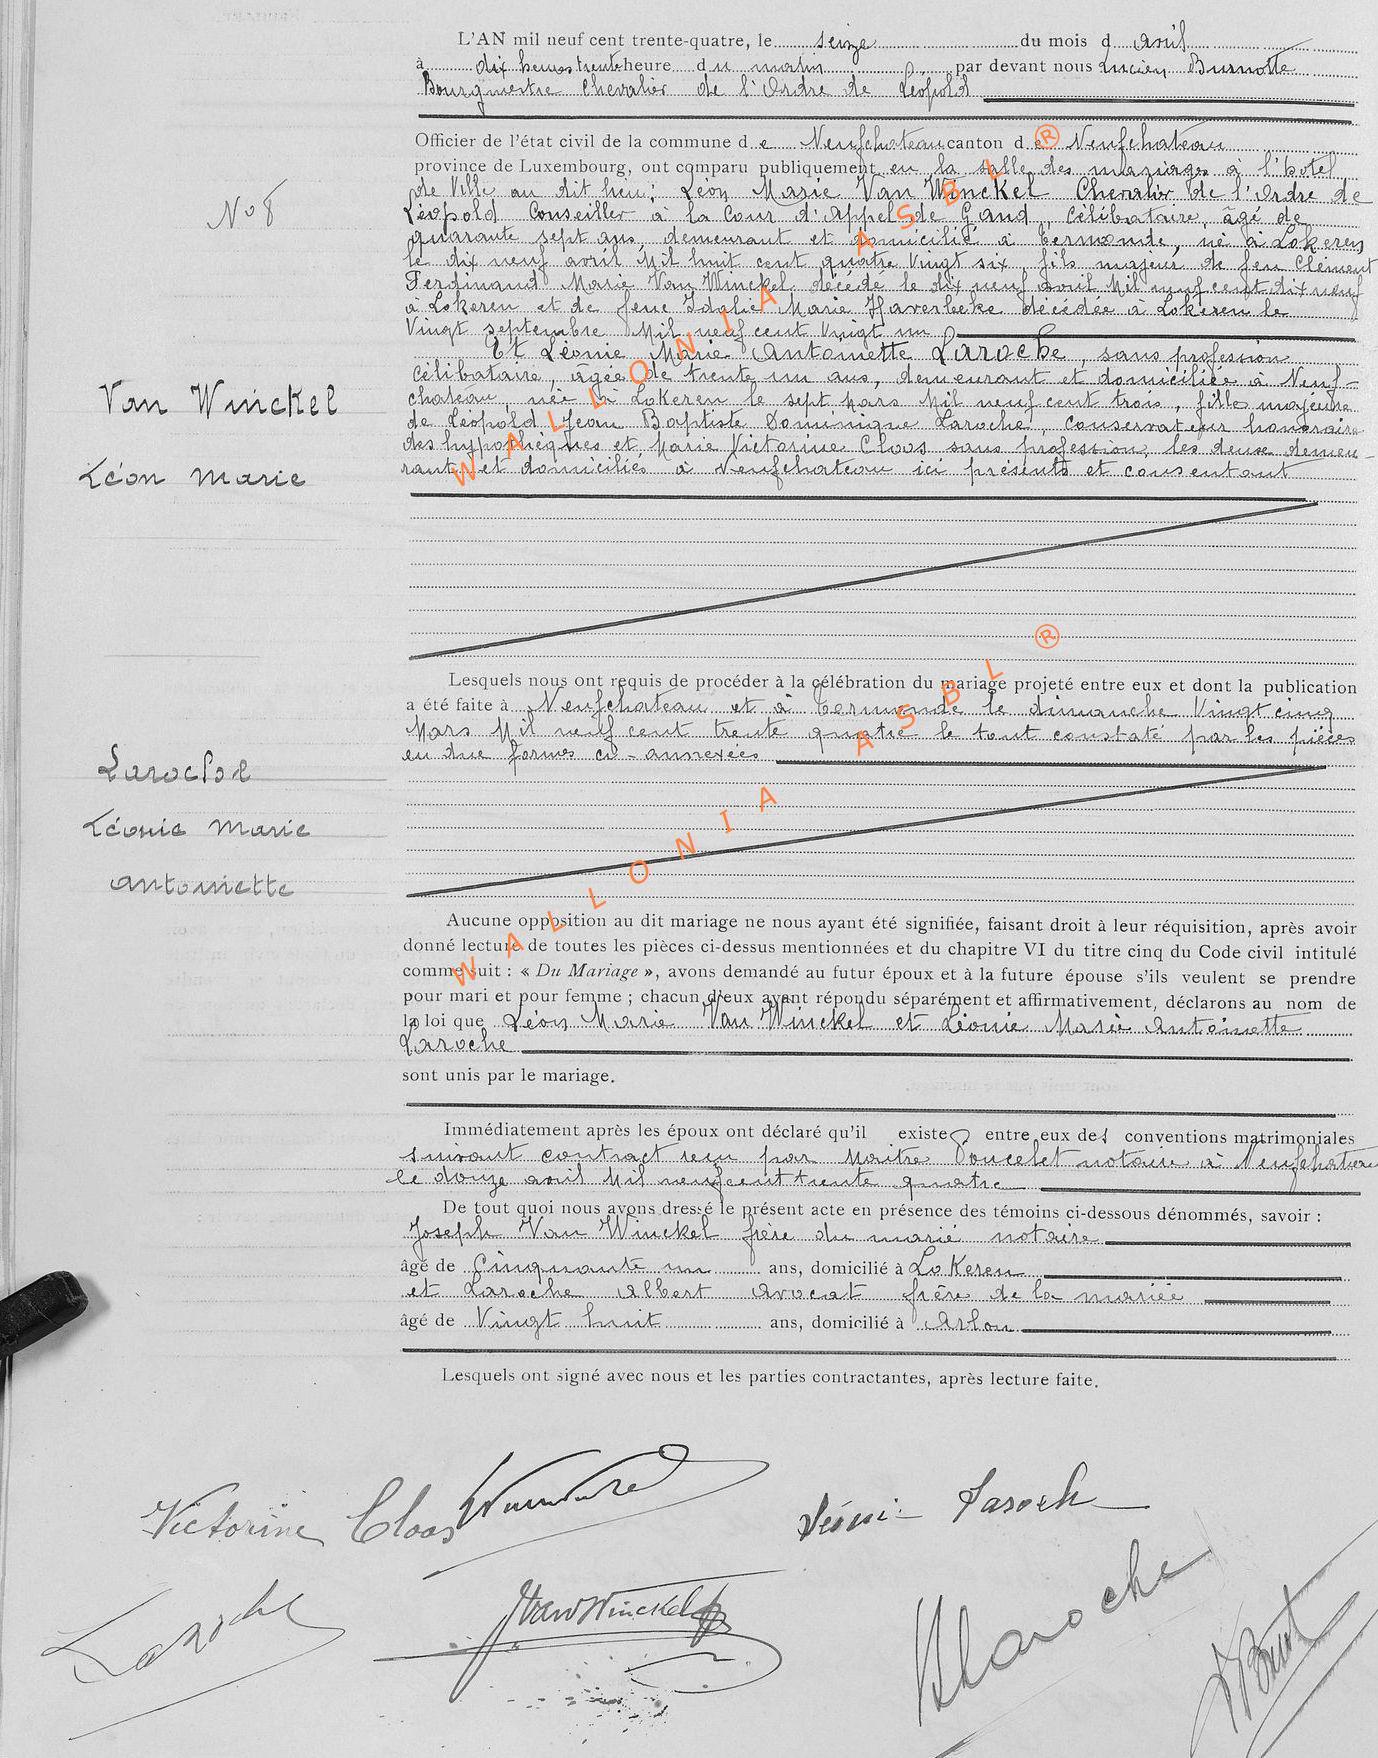 L'AN mil neuf cent trente-quatre, le seize du mois d avril
à dix heures trente heure du matin par devant nous Lucien Burnotte
Bourgmestre Chevalier de l'Ordre de Léopold
Officier de l'état civil de la commune de Neufchateau canton de Neufchateau
province de Luxembourg, ont comparu publiquement en la salle des mariages à l'hotel
de Ville au dit lieu: Léon Marie Van Winckel Chevalier de l'Ordre de
N° 8
Léopold Conseiller à la Cour d'Appel de Gand, célibataire, âgé de
quarante sept ans, demeurant et domicilié à Termonde, né à Lokeren
le dix neuf avril Mil huit cent quatre Vingt six, fils majeur de feu Clément
Ferdinand Marie Van Winckel décédé le dix neuf avril Mil neuf cent dix neuf
à Lokeren et de feue Idalie Marie Haverbeke décédée à Lokeren le
Vingt septembre Mil neuf cent Vingt un
Et Léonie Marie Antoinette Laroche, sans profession
célibataire, âgée de trente un ans, demeurant et domiciliée à Neuf-
Van Winckel
chateau, née à Lokeren le sept Mars Mil neuf cent trois, fille majeure
de Léopold Jean Baptiste Dominique Laroche, conservateur honoraire
des hypothèques et Marie Victorine Cloos sans profession, les deux demeu-
Léon Marie
rant et domiciliés à Neufchateau ici présents et consentant
Lesquels nous ont requis de procéder à la célébration du mariage projeté entre eux et dont la publication
a été faite à Neufchateau et à Termonde le dimanche Vingt cinq
Mars Mil neuf cent trente quatre le tout constaté par les pièces
en due forme ci-annexées
Laroche
Léonie Marie
Antoinette
Aucune opposition au dit mariage ne nous ayant été signifiée, faisant droit à leur réquisition, après avoir
donné lecture de toutes les pièces ci-dessus mentionnées et du chapitre VI du titre cinq du Code civil intitulé
comme suit : « Du Mariage », avons demandé au futur époux et à la future épouse s'ils veulent se prendre
pour mari et pour femme ; chacun d'eux ayant répondu séparément et affirmativement, déclarons au nom de
la loi que Léon Marie Van Winckel et Léonie Marie Antoinette
Laroche
sont unis par le mariage.
Immédiatement après les époux ont déclaré qu'il existe entre eux des conventions matrimoniales
suivant contract reçu par Maitre Poncelet notaire à Neufchateau
le douze avril Mil neuf cent trente quatre
De tout quoi nous avons dressé le présent acte en présence des témoins ci-dessous dénommés, savoir :
Joseph Van Winckel frère du marié notaire
âgé de Cinquante un ans, domicilié à Lokeren
et Laroche Albert Avocat frère de la mariée
âgé de Vingt huit ans, domicilié à Arlon
Lesquels ont signé avec nous et les parties contractantes, après lecture faite.
Victorine Cloos
Léonie Laroche
Laroche
J Van Winckel
Laroche
WALLONIA ASBL ®
WALLONIA ASBL ®